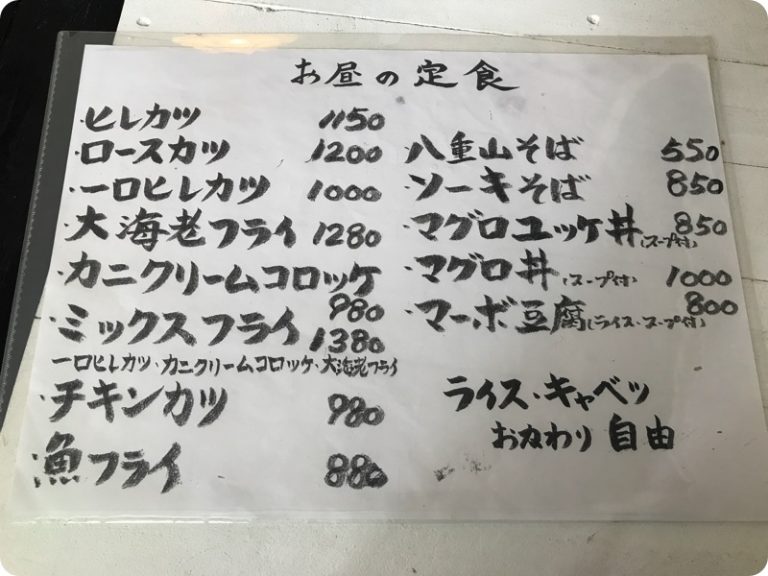 お昼の定食
・ヒレカツ 1150
・ロースカツ 1200
・一口ヒレカツ 1000
・大海老フライ 1280
・カニクリームコロッケ 980
・ミックスフライ 1380
一口ヒレカツ・カニクリームコロッケ・大海老フライ
・チキンカツ 980
・魚フライ 880
・八重山そば 550
・ソーキそば 850
・マグロユッケ丼(スープ付) 850
・マグロ丼(スープ付) 1000
・マーボ豆腐(ライス・スープ付) 800
ライス・キャベツ
おかわり自由